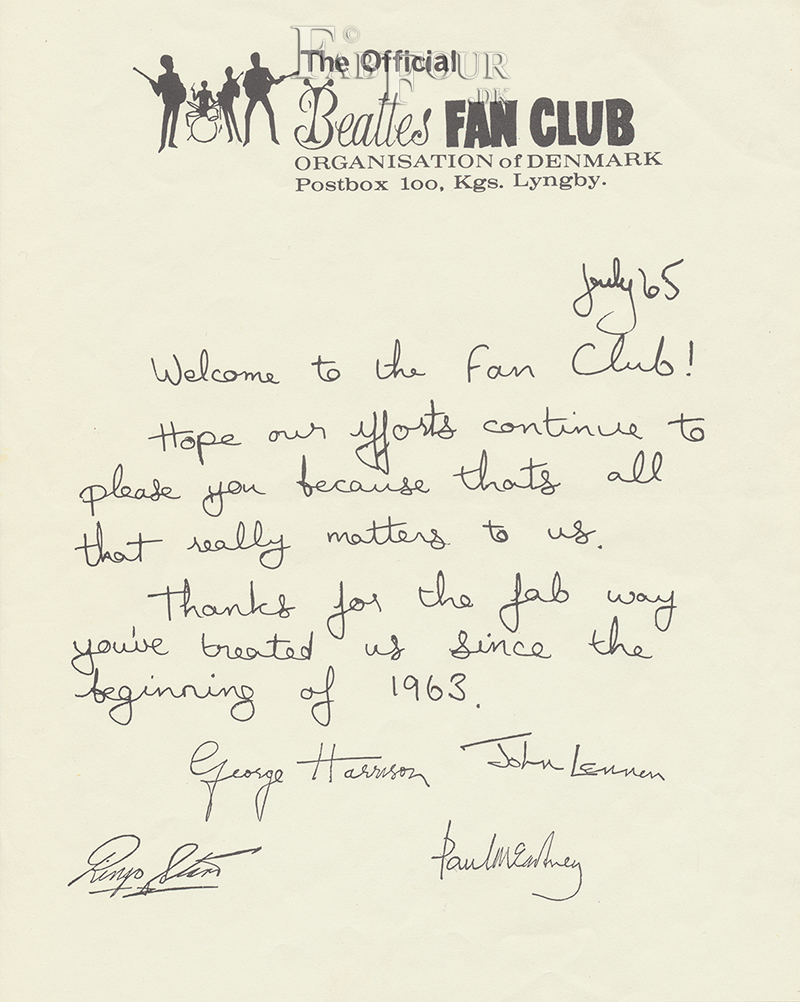 © FAB FOUR .DK
The Official
Beatles FAN CLUB
ORGANISATION of DENMARK
Postbox 100, Kgs. Lyngby.
July 65
Welcome to the Fan Club!
Hope our efforts continue to
please you because thats all
that really matters to us.
Thanks for the fab way
you've treated us since the
beginning of 1963.
George Harrison John Lennon
Ringo Starr Paul McCartney